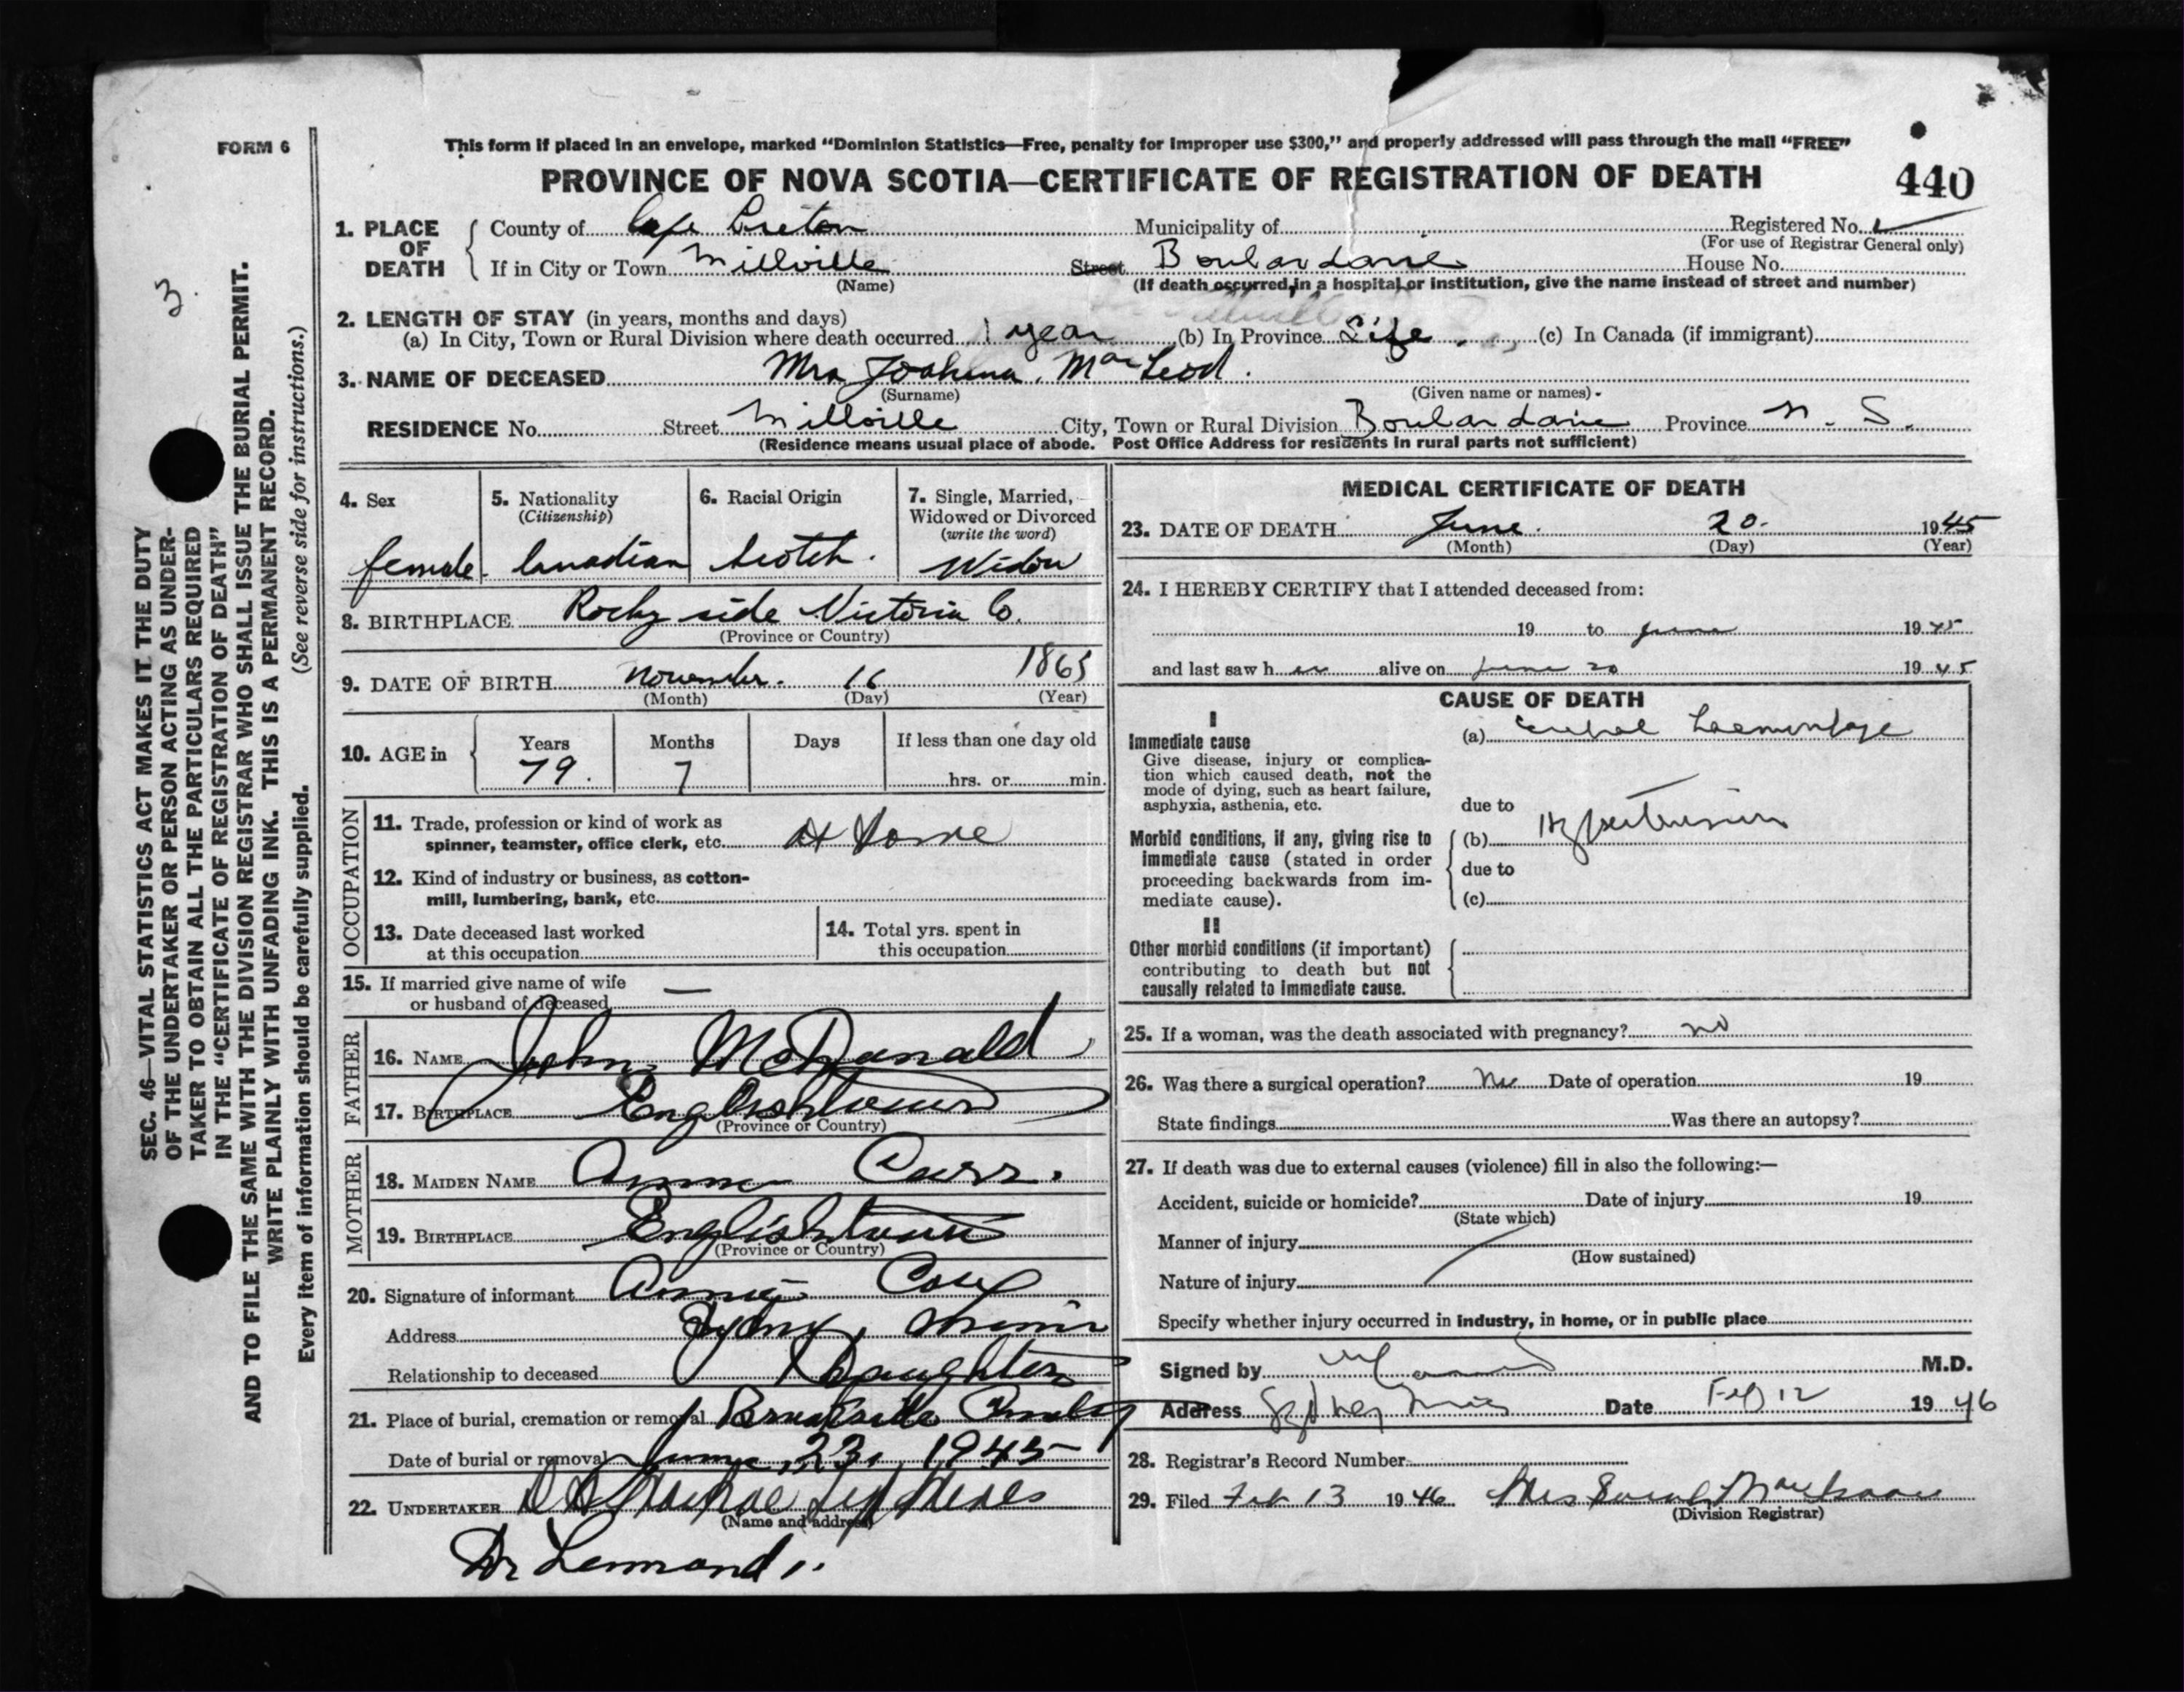 FORM 6
This form if placed in an envelope, marked "Dominion Statistics—Free, penalty for improper use $300," and properly addressed will pass through the mail "FREE"
PROVINCE OF NOVA SCOTIA—CERTIFICATE OF REGISTRATION OF DEATH 440
1. PLACE OF DEATH
County of Cape Breton Municipality of Registered No.
(For use of Registrar General only)
If in City or Town Millville Street Boulardarie House No.
(Name) (If death occurred, in a hospital or institution, give the name instead of street and number)
2. LENGTH OF STAY (in years, months and days)
(a) In City, Town or Rural Division where death occurred 1 year (b) In Province Life (c) In Canada (if immigrant)
3. NAME OF DECEASED Mrs Joahina MacLeod.
(Surname) (Given name or names)
RESIDENCE No. Street Millville City, Town or Rural Division Boulardarie Province N. S.
(Residence means usual place of abode. Post Office Address for residents in rural parts not sufficient)
4. Sex
female
5. Nationality
(Citizenship)
Canadian
6. Racial Origin
Scotch.
7. Single, Married,
Widowed or Divorced
(write the word)
Widow
8. BIRTHPLACE Rocky side Victoria Co.
(Province or Country)
9. DATE OF BIRTH November. 16 1865
(Month) (Day) (Year)
10. AGE in
Years Months Days If less than one day old
79. 7 hrs. or min.
OCCUPATION
11. Trade, profession or kind of work as
spinner, teamster, office clerk, etc. At Home
12. Kind of industry or business, as cotton-
mill, lumbering, bank, etc.
13. Date deceased last worked
at this occupation
14. Total yrs. spent in
this occupation
15. If married give name of wife
or husband of deceased —
FATHER
16. NAME John McDonald
17. BIRTHPLACE Englishtown
(Province or Country)
MOTHER
18. MAIDEN NAME Annie Carr.
19. BIRTHPLACE Englishtown
(Province or Country)
20. Signature of informant Annie Cox
Address Sydney Mines
Relationship to deceased Daughter
21. Place of burial, cremation or removal
Date of burial or removal June 23, 1945
22. UNDERTAKER
(Name and address)
MEDICAL CERTIFICATE OF DEATH
23. DATE OF DEATH June. 20. 1945
(Month) (Day) (Year)
24. I HEREBY CERTIFY that I attended deceased from:
19 to June 1945
and last saw her alive on June 20 1945
CAUSE OF DEATH
I
Immediate cause
Give disease, injury or complica-
tion which caused death, not the
mode of dying, such as heart failure,
asphyxia, asthenia, etc.
(a) haemorrhage
due to
Morbid conditions, if any, giving rise to
immediate cause (stated in order
proceeding backwards from im-
mediate cause).
(b) Hypertension
due to
(c)
II
Other morbid conditions (if important)
contributing to death but not
causally related to immediate cause.
25. If a woman, was the death associated with pregnancy? no
26. Was there a surgical operation? No Date of operation 19
State findings Was there an autopsy?
27. If death was due to external causes (violence) fill in also the following:—
Accident, suicide or homicide? Date of injury 19
(State which)
Manner of injury
(How sustained)
Nature of injury
Specify whether injury occurred in industry, in home, or in public place
Signed by M.D.
Address Sydney Mines Date Feb 12 1946
28. Registrar's Record Number
29. Filed Feb 13 1946 Mrs
(Division Registrar)
3.
SEC. 46—VITAL STATISTICS ACT MAKES IT THE DUTY
OF THE UNDERTAKER OR PERSON ACTING AS UNDER-
TAKER TO OBTAIN ALL THE PARTICULARS REQUIRED
IN THE "CERTIFICATE OF REGISTRATION OF DEATH"
AND TO FILE THE SAME WITH THE DIVISION REGISTRAR WHO SHALL ISSUE THE BURIAL PERMIT.
WRITE PLAINLY WITH UNFADING INK. THIS IS A PERMANENT RECORD.
Every item of information should be carefully supplied. (See reverse side for instructions.)